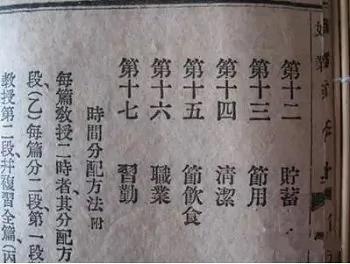 第十二 貯蓄
第十三 節用
第十四 清潔
第十五 節飲食
第十六 職業
第十七 習勤
時間分配方法附
每篇教授二時者、其分配方
段、(乙)每篇分二段、第一段
教授第二段、幷複習全篇、(丙